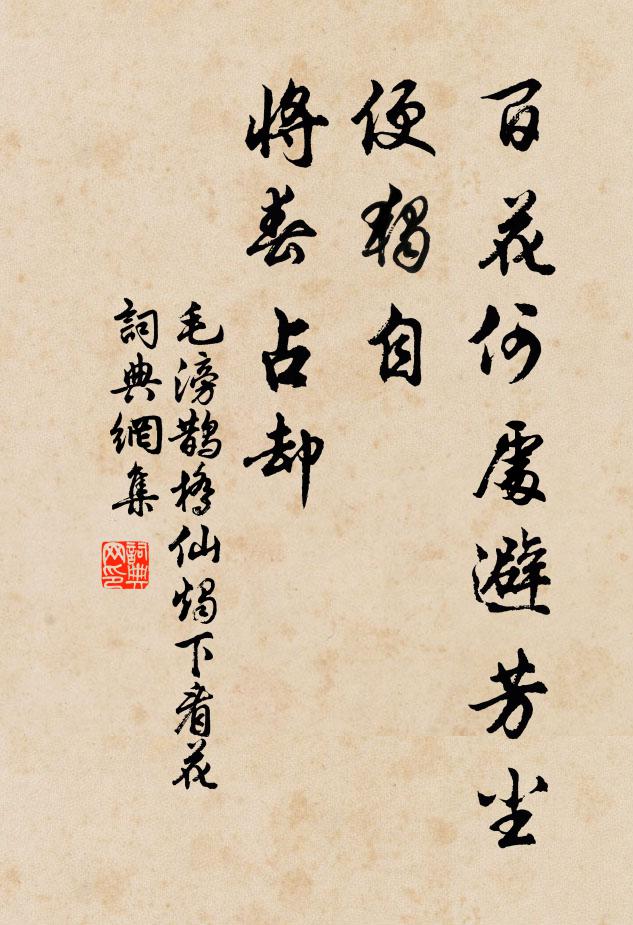 百花何處避芳尘
便独自
將春占却
毛滂鵲橋仙燭下看花
詞典網集
詞典网印